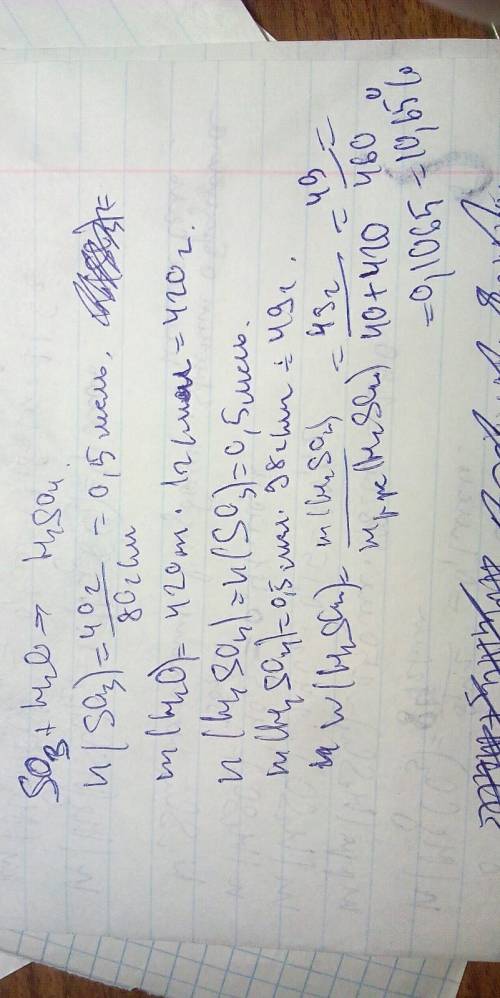 SO3 + H2O → H2SO4.
n(SO3) = 40г / 80г/м = 0,5 моль.
m(H2O) = 420 m · 1г/мл = 420 г.
n(H2SO4) = n(SO3) = 0,5 моль.
m(H2SO4) = 0,5 мол · 98г/м = 49 г.
w(H2SO4) = m(H2SO4) / (H2SO4) = 43г / 40+420 = 49 / 460 =
= 0,1065 = 10,65%